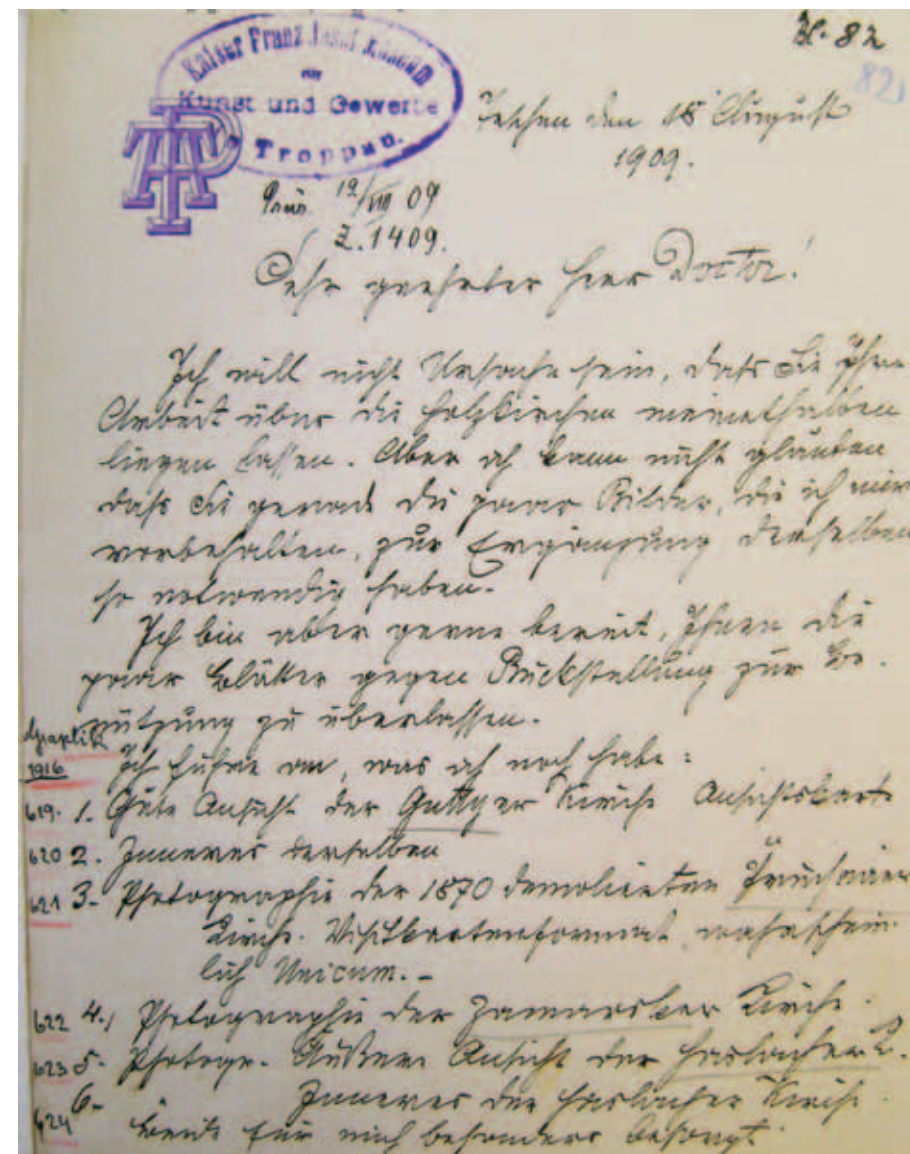 Bl. 82
82
Kaiser Franz Josef Museum
für
Kunst und Gewerbe
Troppau.
Teschen den 18 August
1909.
Präs. 19/VIII 09
Z. 1409.
Sehr geehrter Herr Doctor!
Ich will nicht Ursache sein, dass Sie Ihre
Arbeit über die Holzkirchen meinethalben
liegen lassen. Aber ich kann nicht glauben
dass Sie gerade die paar Bilder, die ich mir
vorbehalten, zur Ergänzung derselben
so notwendig haben.
Ich bin aber gerne bereit, Ihnen die
paar Blätter gegen Rückstellung zur Be-
nützung zu überlassen.
Graphik
1916
Ich führe an, was ich noch habe:
619. 1. Gute Ansicht der Guttyer Kirche Ansichtskarte
620 2. Inneres derselben
621 3. Photographie der 1870 demolierten Pruchnaer
Kirche. Visitkartenformat, wahrschein-
lich Unicum. -
622 4., Photographie der Zamarsker Kirche.
623 5. Photogr. Äußere Ansicht der Haslacher K.
624 6. Inneres der Haslacher Kirche.
Beide für mich besonders besorgt.